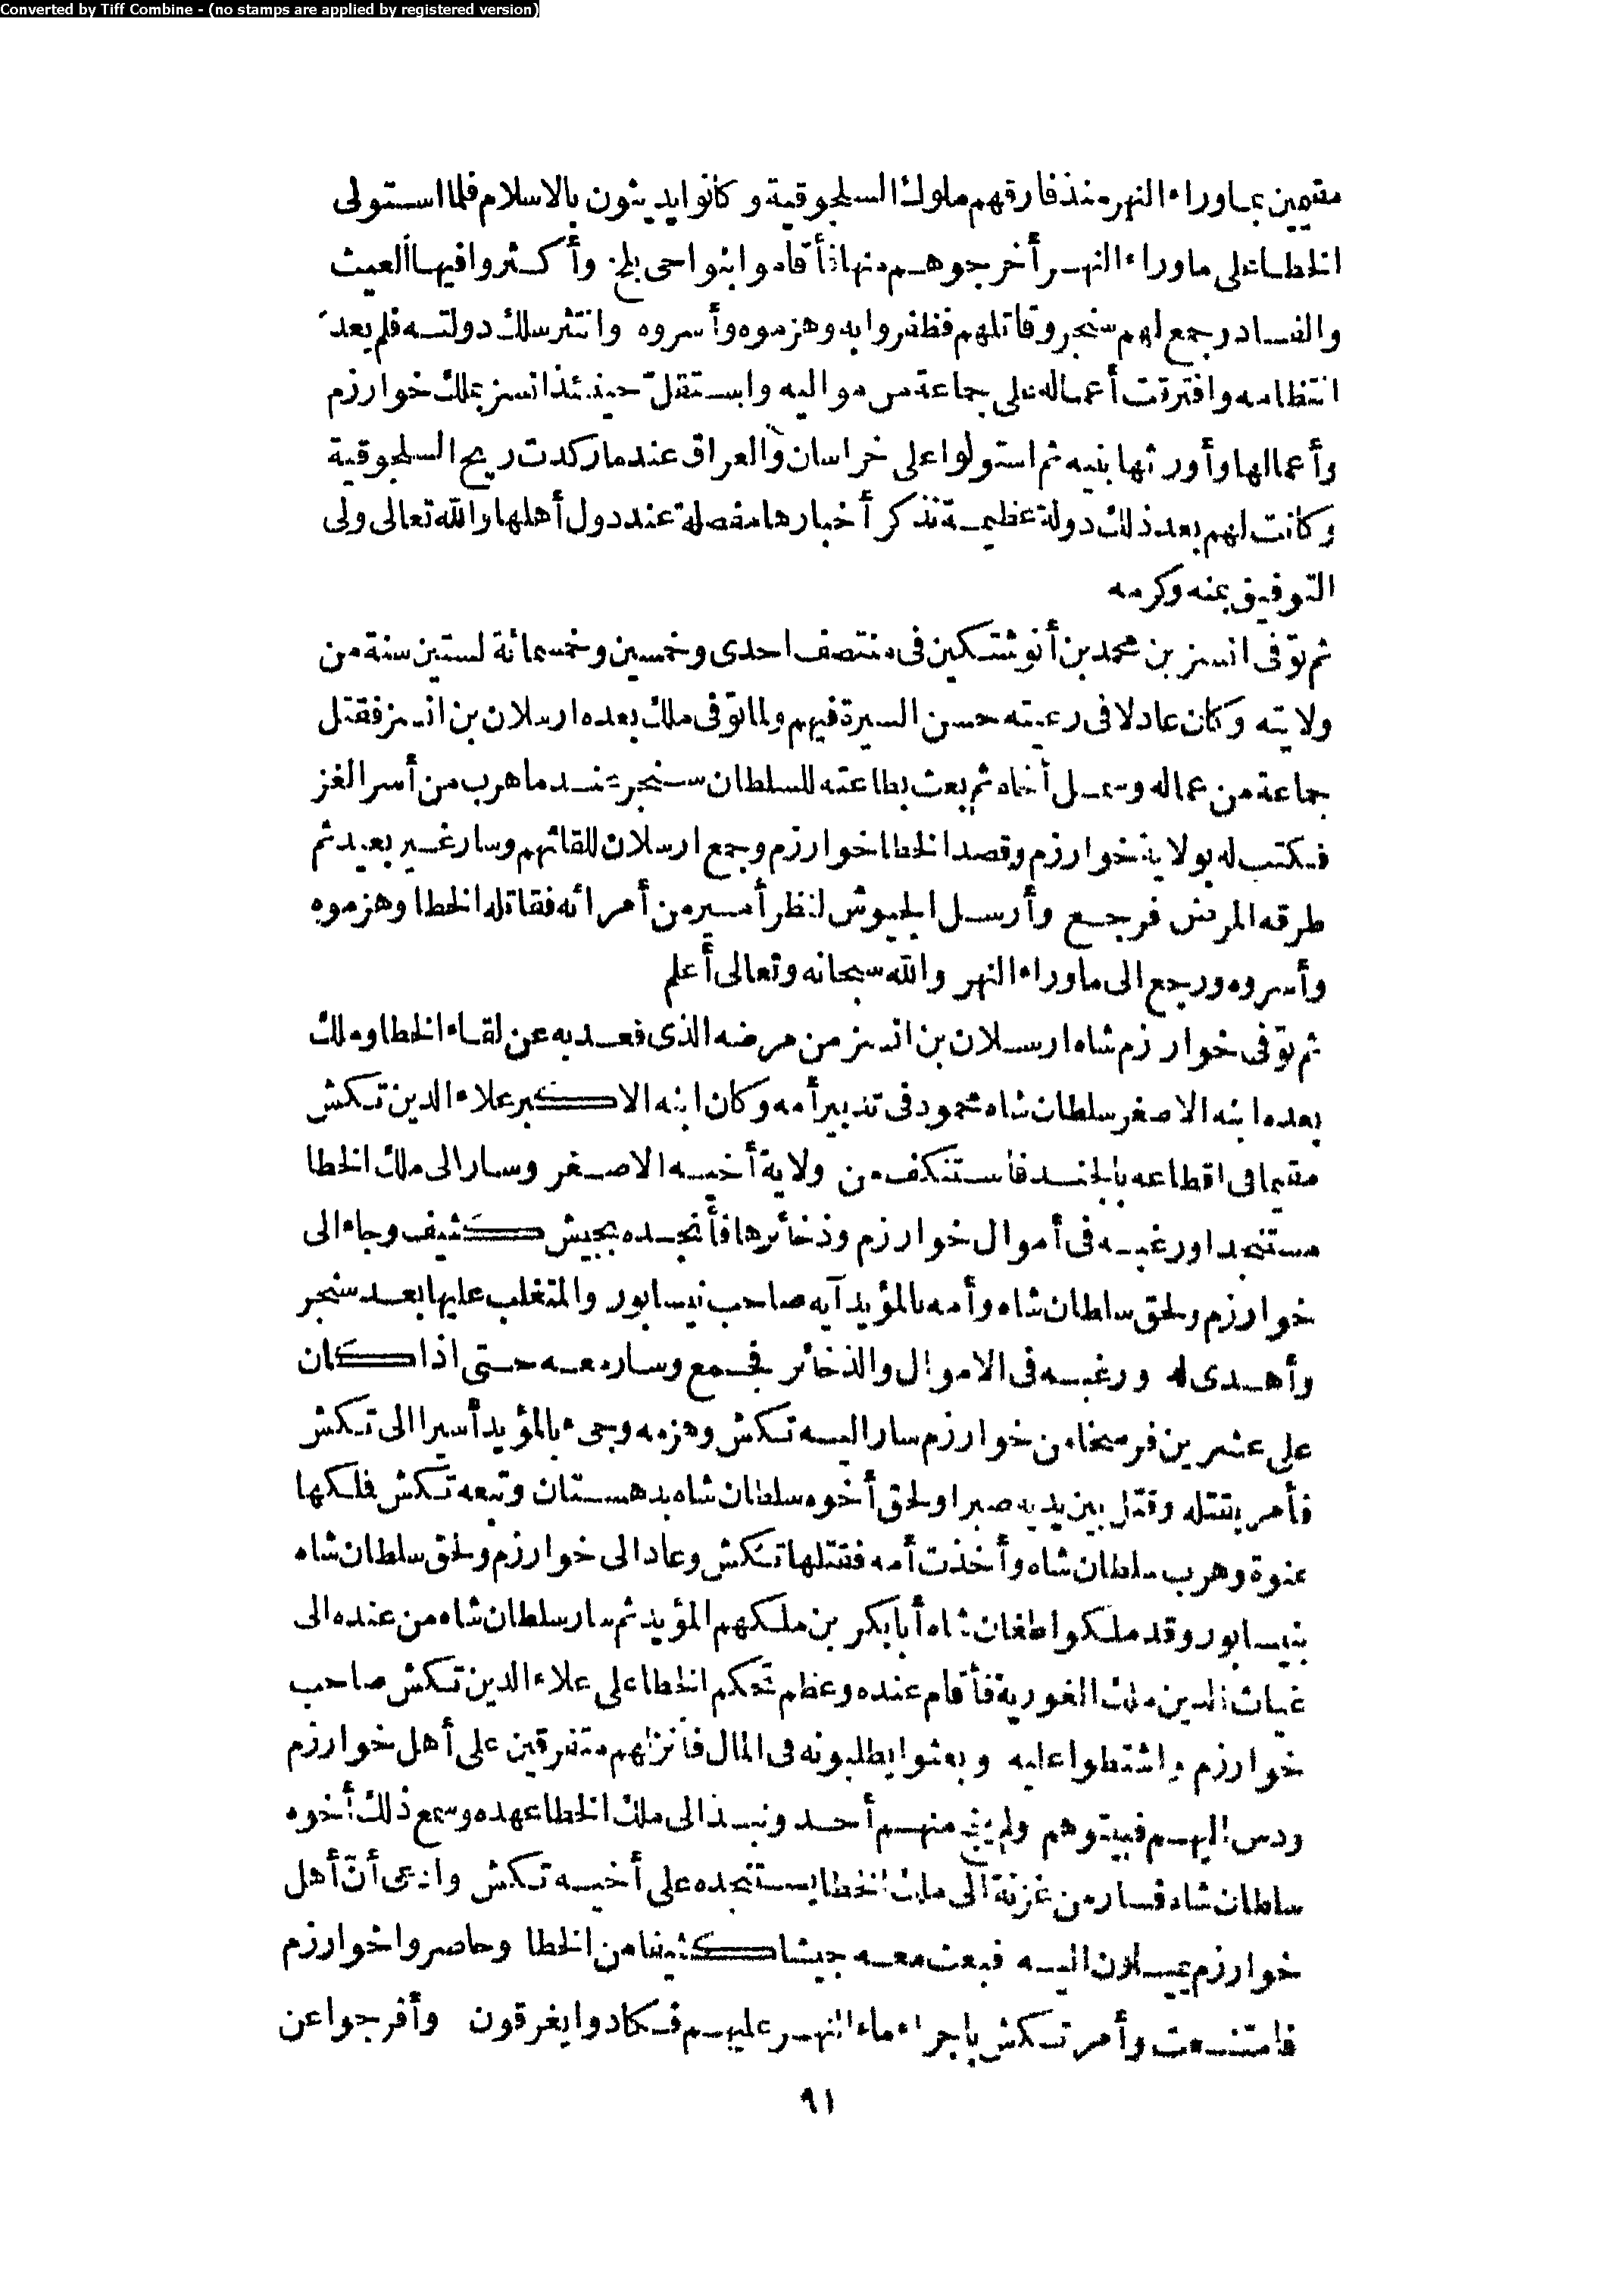 Converted by Tiff Combine - (no stamps are applied by registered version)
مقيمين بماوراء النهر منذ فارقهم ملوك السلجوقية وكانوا يدينون بالاسلام فلما استولى
الخطا على ماوراء النهر أخرجوهم منها فأقاموا بنواحى بلخ وأكثروا فيها العيث
والفساد وجمع لهم سنجر وقاتلهم فظفروا به وهزموه وأسروه وانتثر سلك دولته فلم يعد
انتظامه وافترقت أعماله على جماعة من مواليه واستقل حينئذ اتسز بملك خوارزم
وأعمالها وأورثها بنيه ثم استولوا على خراسان والعراق عند ماركدت ريح السلجوقية
وكانت لهم بعد ذلك دولة عظيمة نذكر أخبارها مفصلة عند دول أهلها والله تعالى ولى
التوفيق بمنه وكرمه
ثم توّفى اتسز بن محمد بن أنوشتكين فى منتصف احدى وخمسين وخمسمائة لستين سنة من
ولايته وكان عادلا فى رعيته حسن السيرة فيهم ولما توّفى ملك بعده ارسلان بن اتسز فقتل
جماعة من عماله وسمل أخاه ثم بعث بطاعته للسلطان سنجر عند ما هرب من أسر الغز
فكتب له بولاية خوارزم وقصد الخطا خوارزم وجمع ارسلان للقائهم وسار غير بعيد ثم
طرقه المرض فرجع وأرسل الجيوش لنظر أمير من أمرائه فقاتله الخطا وهزموه
وأسروه ورجع الى ماوراء النهر والله سبحانه وتعالى أعلم
ثم توّفى خوارزم شاه ارسلان بن اتسز من مرضه الذى قعد به عن لقاء الخطا وملك
بعده ابنه الاصغر سلطان شاه محمود فى تدبير أمه وكان ابنه الاكبر علاء الدين تكش
مقيما فى اقطاعه بالجند فاستنكف من ولاية أخيه الاصغر وسار الى ملك الخطا
مستنجدا ورغبه فى أموال خوارزم وذخائرها فأنجده بجيش كثيف وجاء الى
خوارزم ولحق سلطان شاه وأمه بالمؤيد آيه صاحب نيسابور والمتغلب عليها بعد سنجر
وأهدى له ورغبه فى الاموال والذخائر فجمع وسار معه حتى اذا كان
على عشرين فرسخا من خوارزم سار اليه تكش وهزمه وجىء بالمؤيد أسيرا الى تكش
فأمر بقتله وقتل بين يديه صبرا ولحق أخوه سلطان شاه بدهستان وتبعه تكش فملكها
عنوة وهرب سلطان شاه وأخذت أمه فقتلها تكش وعاد الى خوارزم ولحق سلطان شاه
بنيسابور وقد ملكوا طغان شاه أبا بكر بن ملكهم المؤيد ثم سار سلطان شاه من عنده الى
غياث الدين ملك الغورية فأقام عنده وعظم تحكم الخطا على علاء الدين تكش صاحب
خوارزم واشتطوا عليه وبعثوا يطلبونه فى المال فأنزلهم متفرقين على أهل خوارزم
ودس اليهم فبيتوهم ولم ينج منهم أحد ونبذ الى ملك الخطا عهده وسمع ذلك أخوه
سلطان شاه فسار من غزنة الى ملك الخطا يستنجده على أخيه تكش وادّعى أنّ أهل
خوارزم يميلون اليه فبعث معه جيشا كثيفا من الخطا وحاصروا خوارزم
فامتنعت وأمر تكش باجراء ماء النهر عليهم فكادوا يغرقون وأفرجوا عن
٩١